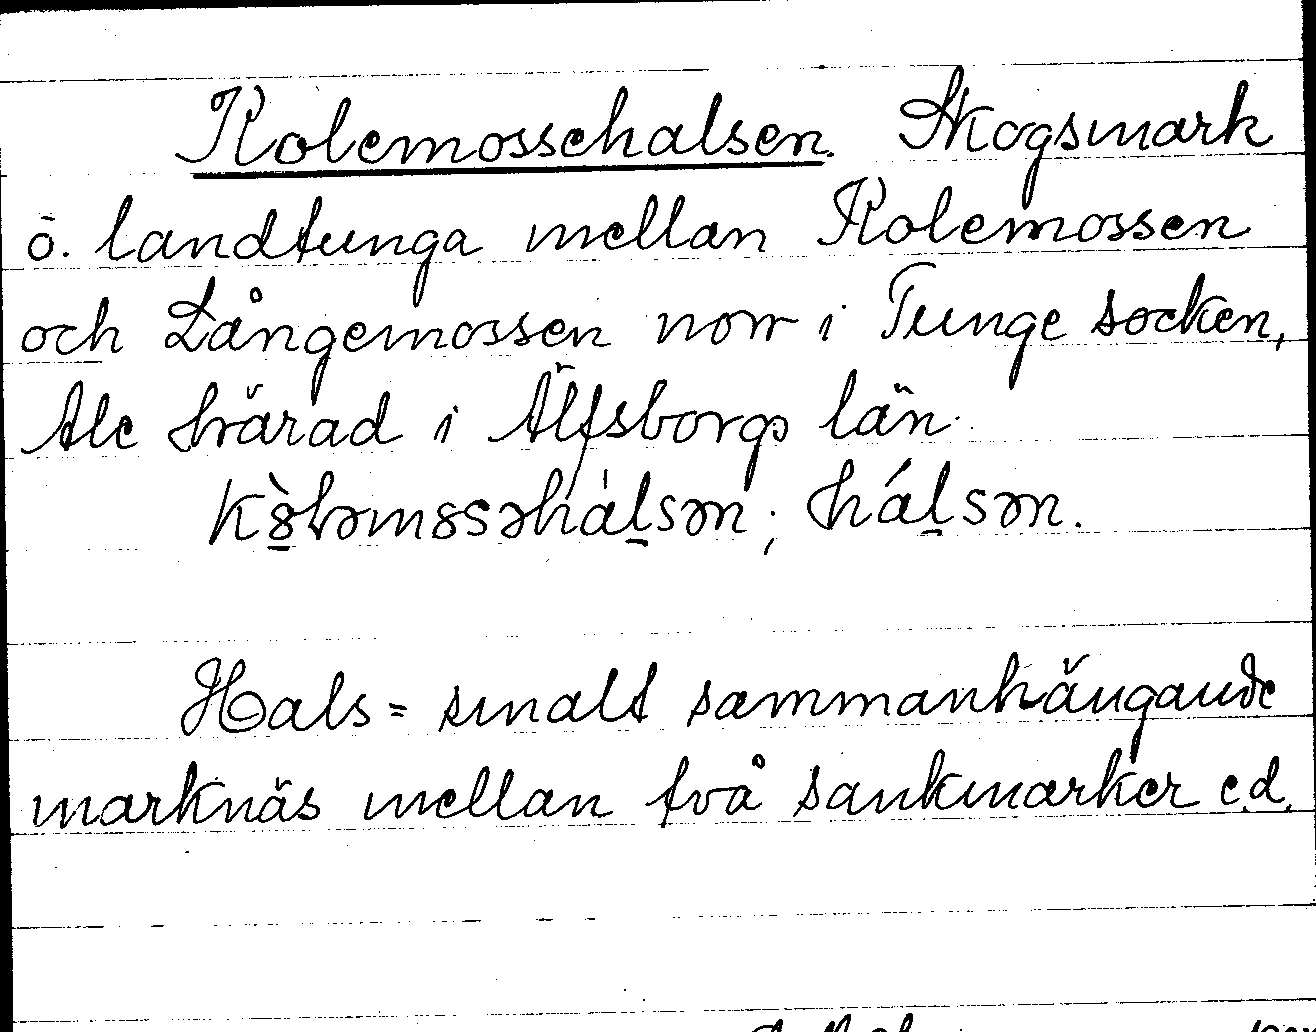 Kolemossehalsen. Skogsmark
o. landtunga mellan Kolemossen
och Långemossen norr i Tunge socken,
Ale härad i Älfsborgs län.
hálsən.
Hals = smalt sammanhängande
marknäs mellan två sankmarker e.d.